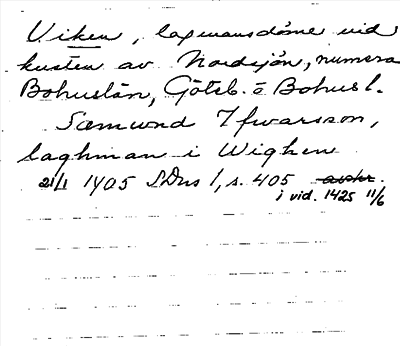 Viken, lagmansdöme vid
kusten av Nordsjön, numera
Bohuslän, Göteb. o Bohus l.
Sæmund Ifwarsson,
laghman i Wighen
21/1 1405 SDns 1, s. 405 avskr.
i vid. 1425 11/6